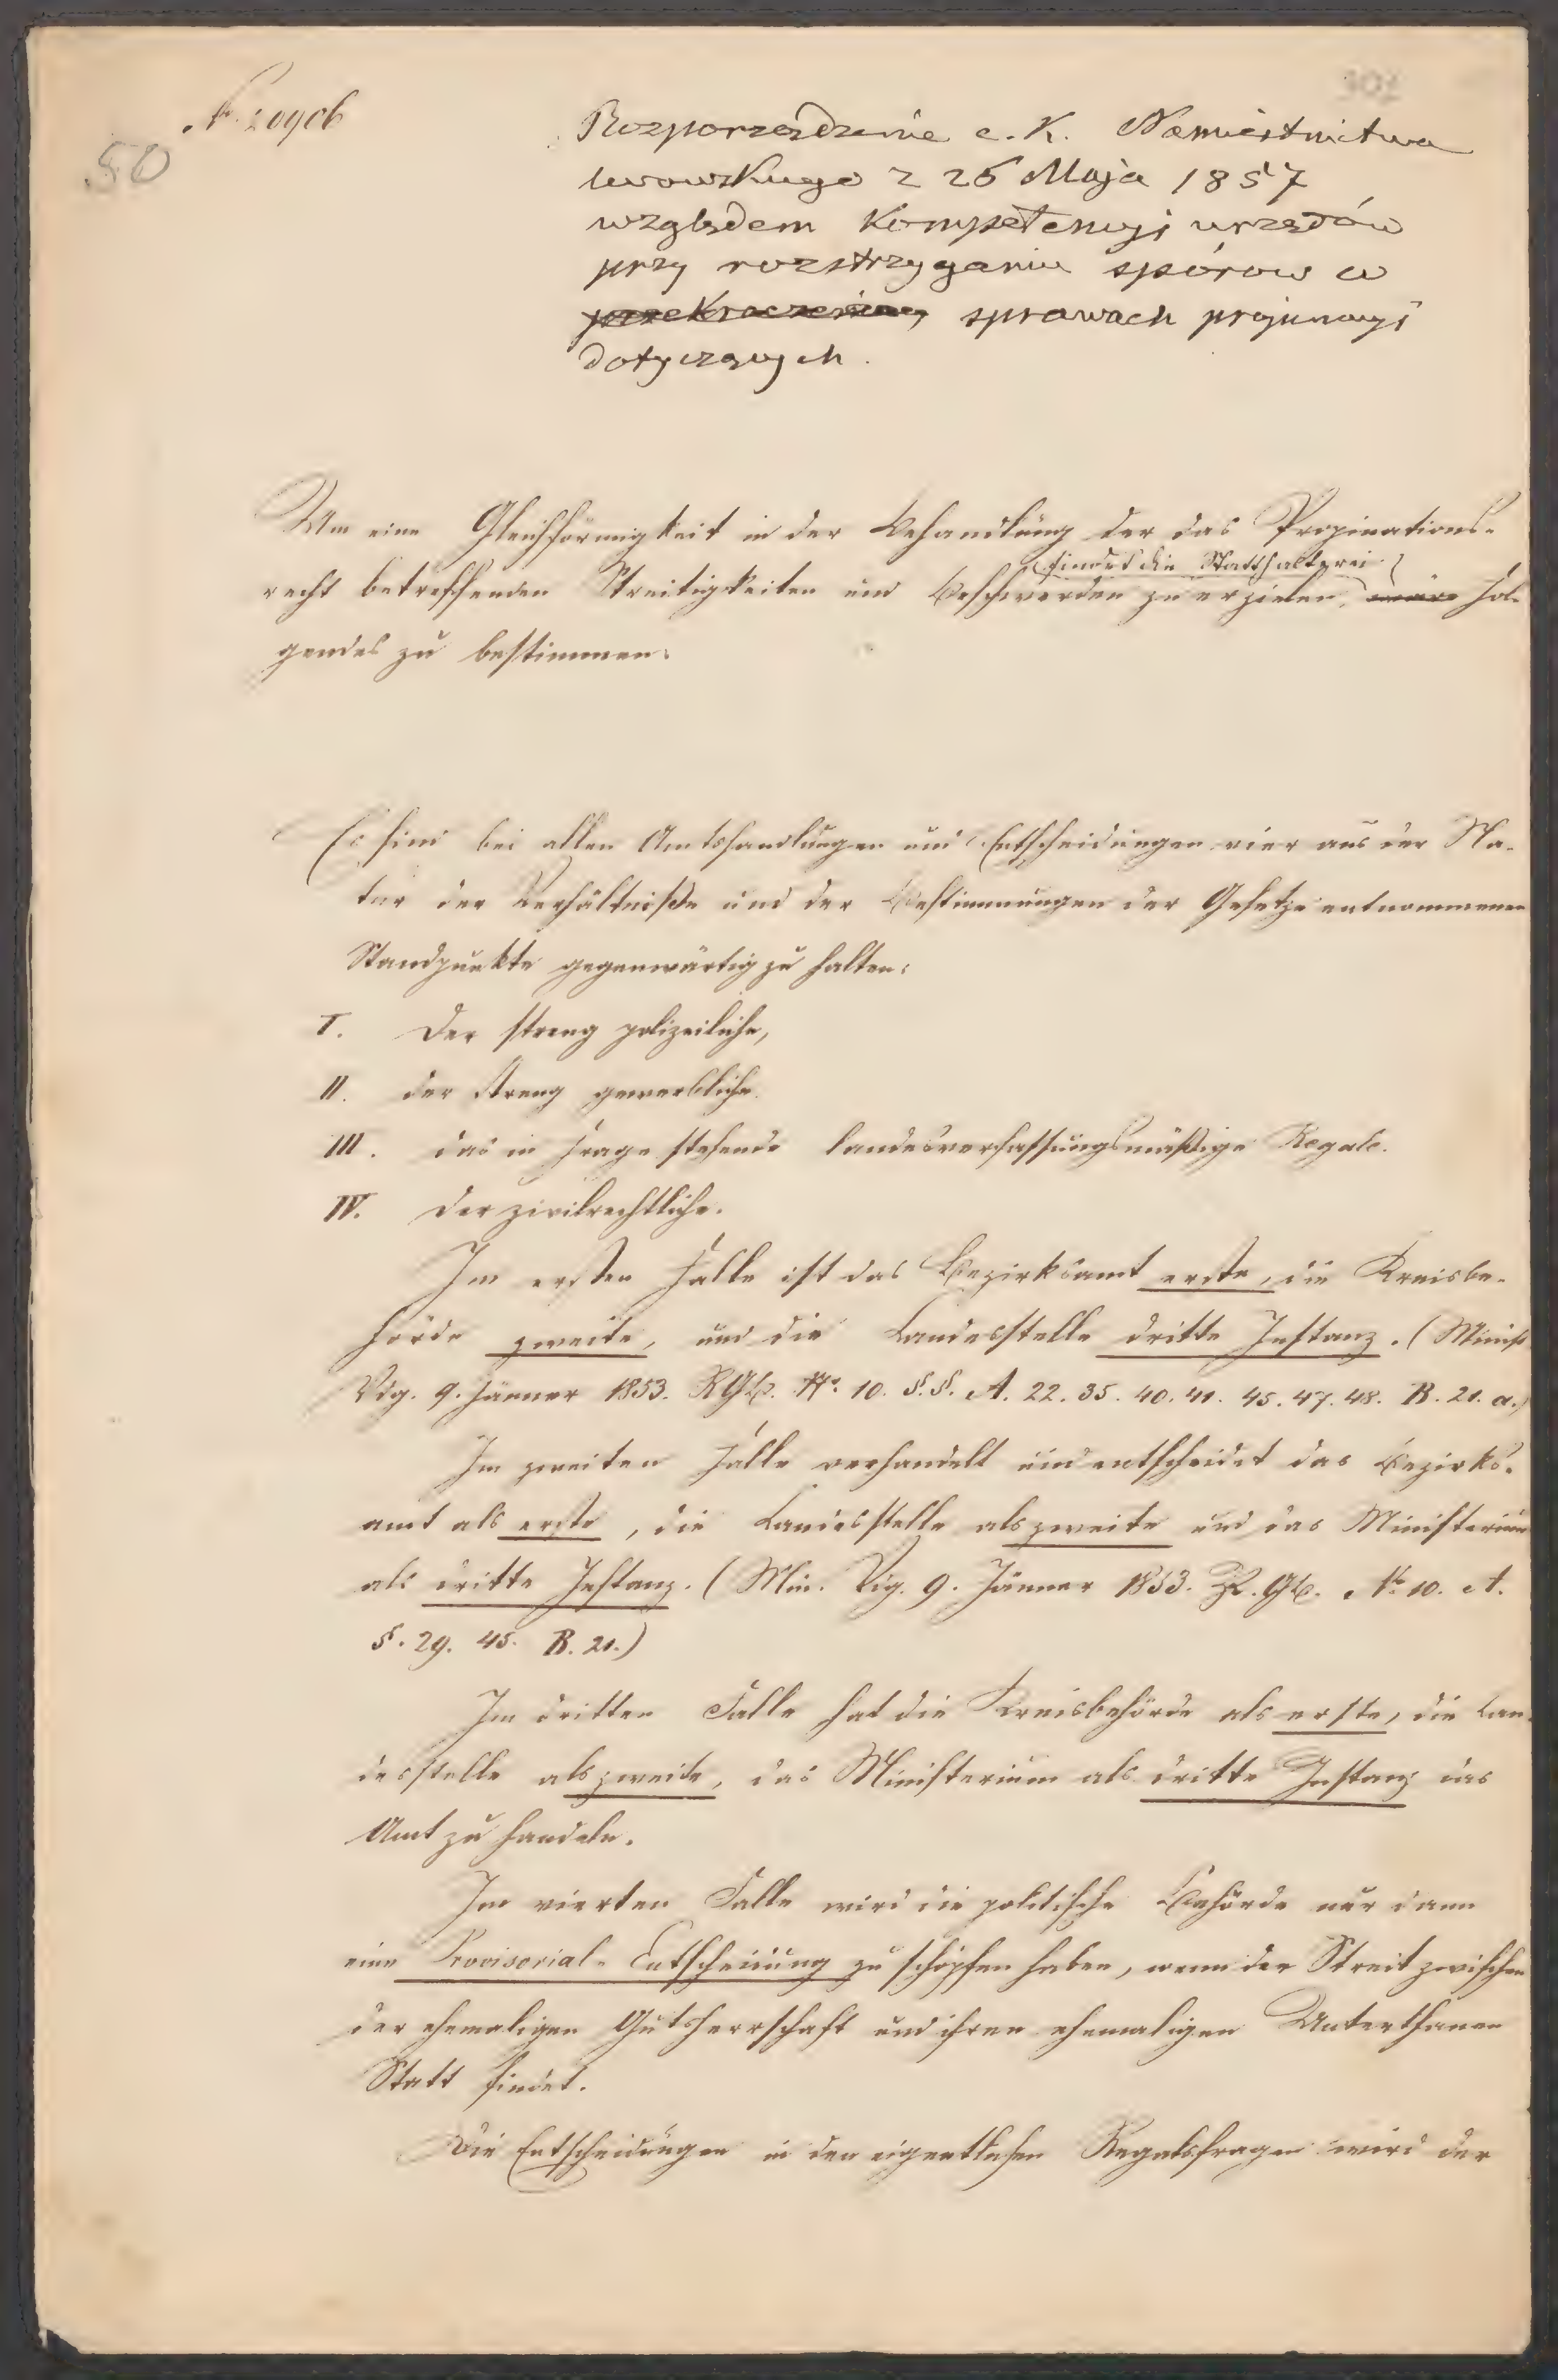 301
N. 20906
50
Rozporządzenie c. K. Namiestnictwa
lwowskiego z 26 Maja 1857
względem Kompetencyi urzędów
przy rozstrzyganiu sporów w
przekroczeniach sprawach propinacyi
dotyczących.
Um eine Gleichförmigkeit in der Behandlung der das Propinations-
findet die Statthalterei
recht betreffenden Streitigkeiten und Beschwerden zu erzielen, wäre Fol-
gendes zu bestimmen:
Es sind bei allen Amtshandlungen und Entscheidungen vier aus der Na-
tur der Verhältniße und der Bestimmungen der Gesetze entnommenen
Standpunkte gegenwärtig zu halten:
I. Der streng polizeiliche,
II. der streng gewerbliche.
III. das in Frage stehende landesverfassungsmäßige Regale.
IV. der zivilrechtliche.
Im ersten Falle ist das Bezirksamt erste, die Kreisbe-
hörde zweite, und die Landesstelle dritte Instanz. (Minist
Vdg. 9. Jänner 1853. RGB. Nr. 10. §.§. A. 22. 35. 40. 41. 45. 47. 48. B. 21. a.)
Im zweiten Falle verhandelt und entscheidet das Bezirks-
amt als erste, die Landesstelle als zweite und das Ministerium
als dritte Instanz. (Min. Vdg. 9. Jänner 1853. R. GB. Nr. 10. A.
§. 29. 45. B. 21.)
Im dritten Falle hat die Kreisbehörde als erste, die Lan-
desstelle als zweite, das Ministerium als dritte Instanz das
Amt zu handeln.
Im vierten Falle wird die politische Behörde nur dann
eine Provisorial-Entscheidung zu schöpfen haben, wenn der Streit zwischen
der ehemaligen Gutsherrschaft und ihren ehemaligen Unterthanen
Statt findet.
Die Entscheidungen in den eigentlichen Regalsfragen wird der